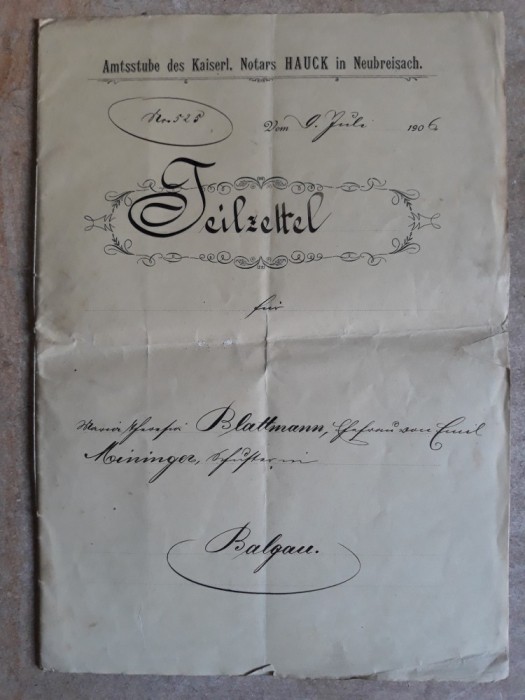 Amtsstube des Kaiserl. Notars HAUCK in Neubreisach.
No. 525
Vom 9. Juli 1906
Teilzettel
für
Maria Theresia Blattmann, Ehefrau von Emil
Meininger, Schuster in
Balgau.